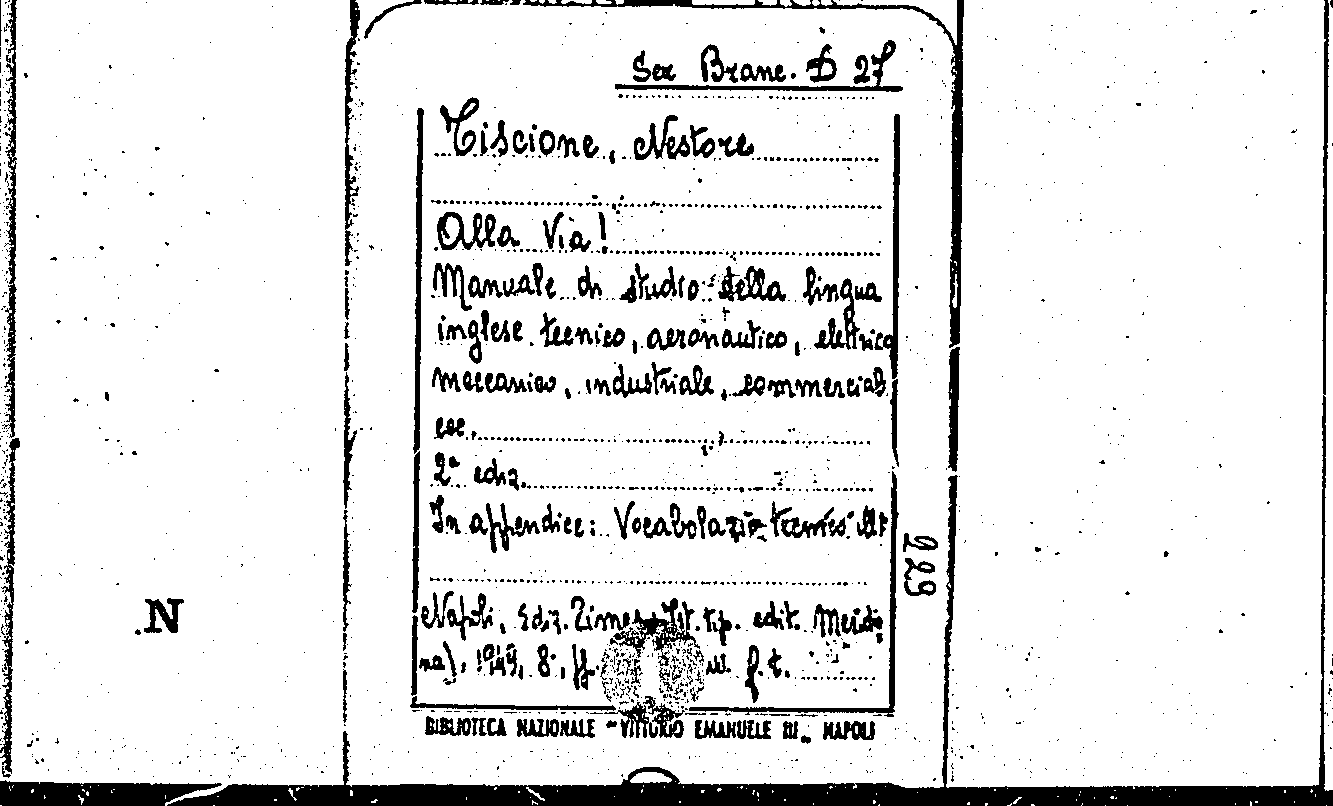 Sez Branc. D 27
Tiscione, Nestore
Alla Via!
Manuale di studio della lingua
inglese tecnico, aeronautico, elettrico
meccanico, industriale, commerciale
ecc.
2ª ediz.
In appendice: Vocabolazio tecnico
Napoli, Ediz. Times, Ist. tip. edit. Meridio
na), 1949, 8°, ill. f. t.
229
N
BIBLIOTECA NAZIONALE "VITTORIO EMANUELE III„ NAPOLI